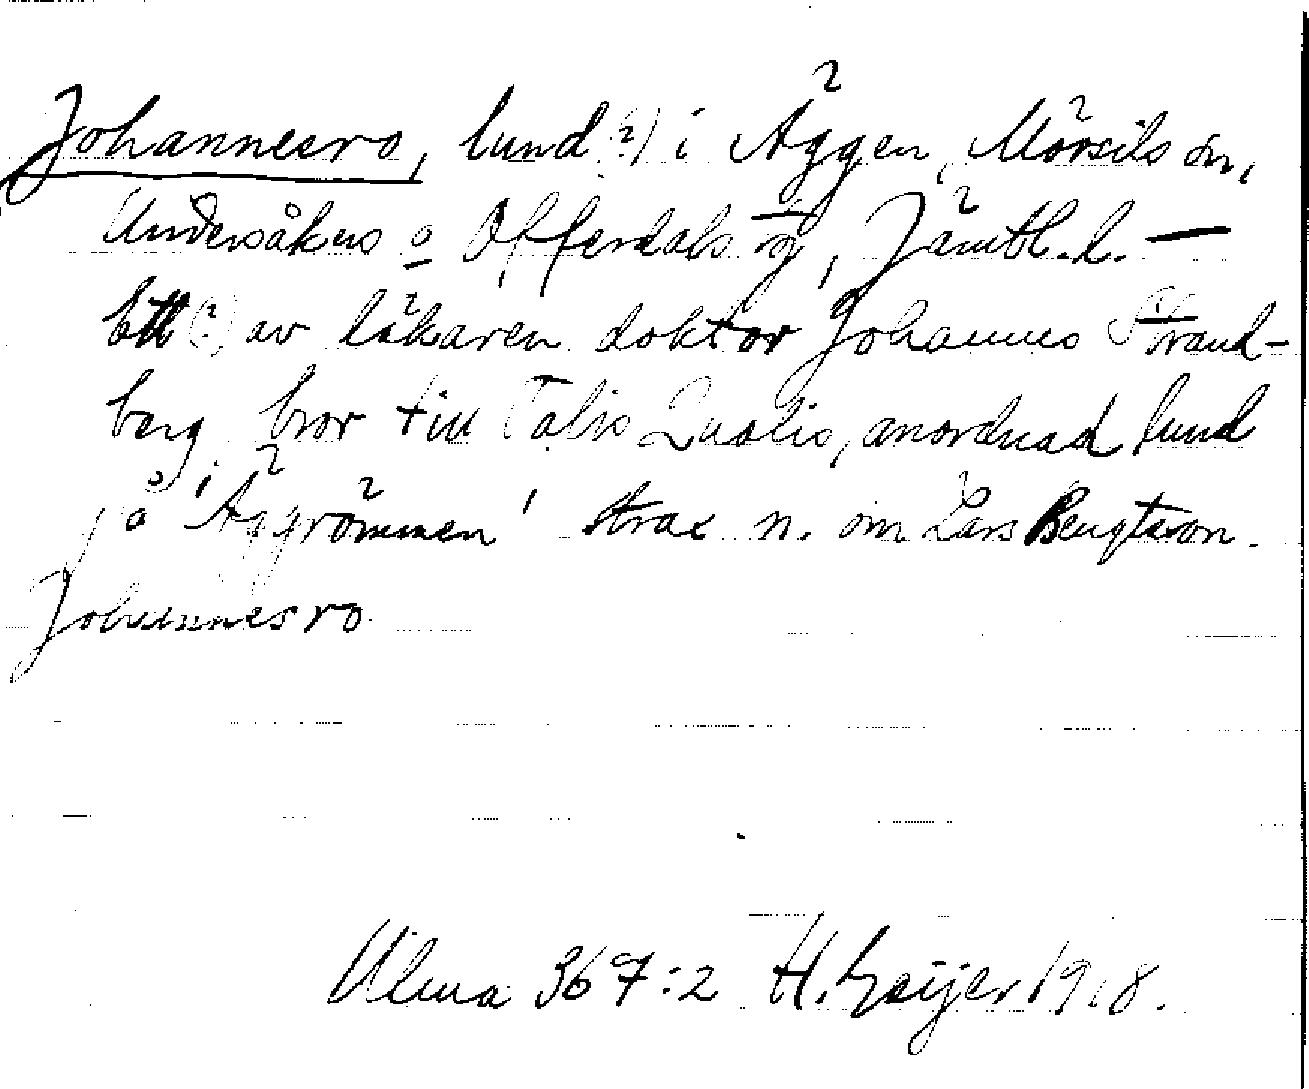 Johannesro, lund (?) i Äggen, Mörsils sn,
Undersåkers o Offerdals tg, Jämtl. l. —
Ett (?) av läkaren doktor Johannes Strand-
berg, bror till Talis Qualis, anordnad lund
på 'Äggrömmen' strax n. om Lars Bengtson.
Johannesro.
Ulma 367:2 H. Geijer 1918.